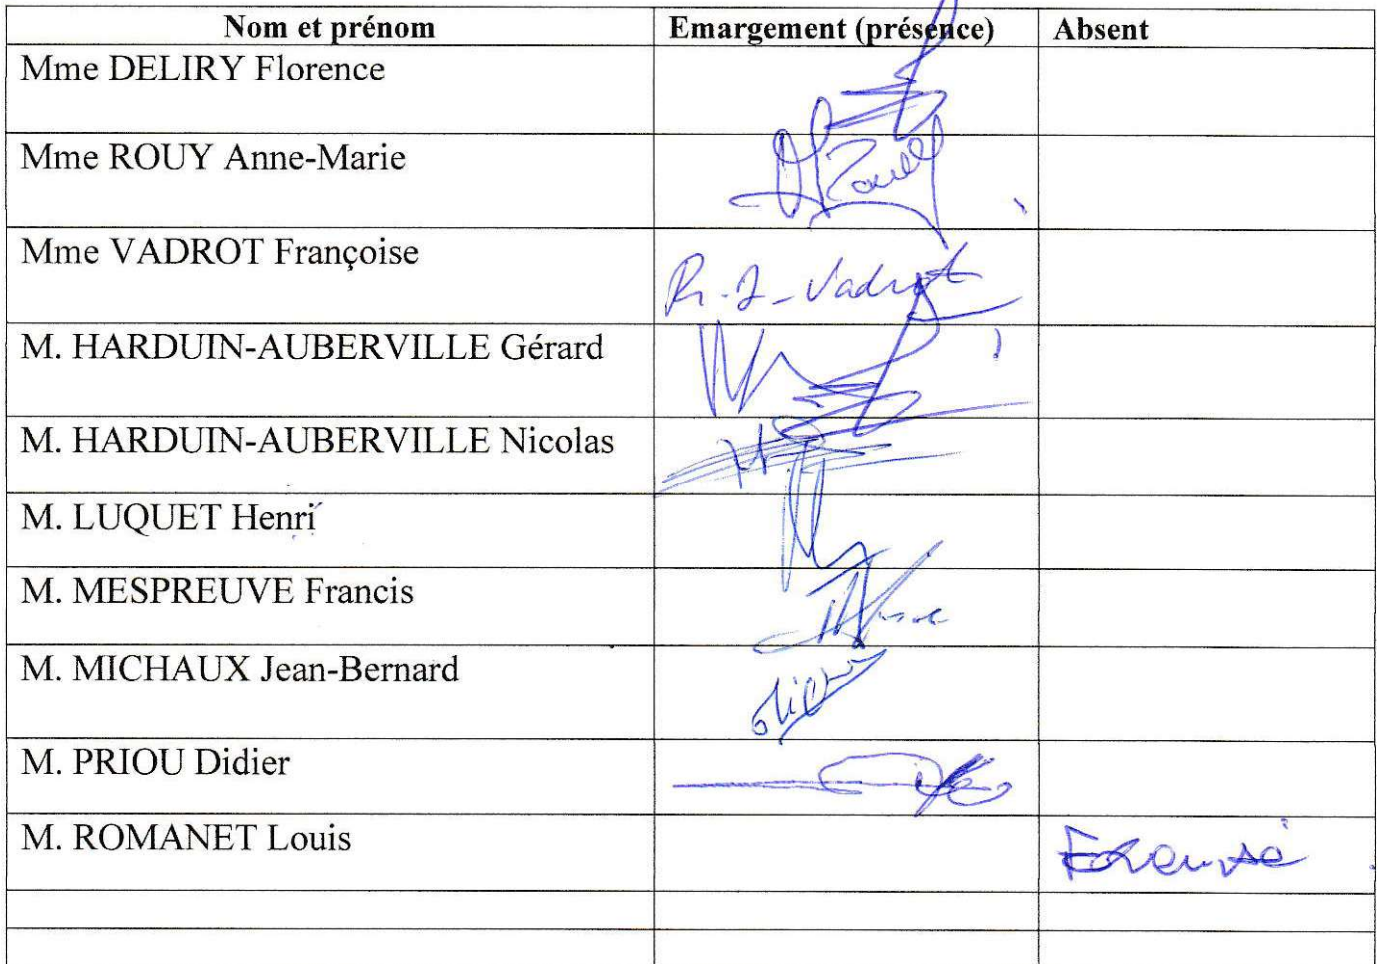 Nom et prénom Emargement (présence) Absent
Mme DELIRY Florence
Mme ROUY Anne-Marie
Mme VADROT Françoise Vadrot
M. HARDUIN-AUBERVILLE Gérard
M. HARDUIN-AUBERVILLE Nicolas
M. LUQUET Henri
M. MESPREUVE Francis
M. MICHAUX Jean-Bernard
M. PRIOU Didier
M. ROMANET Louis